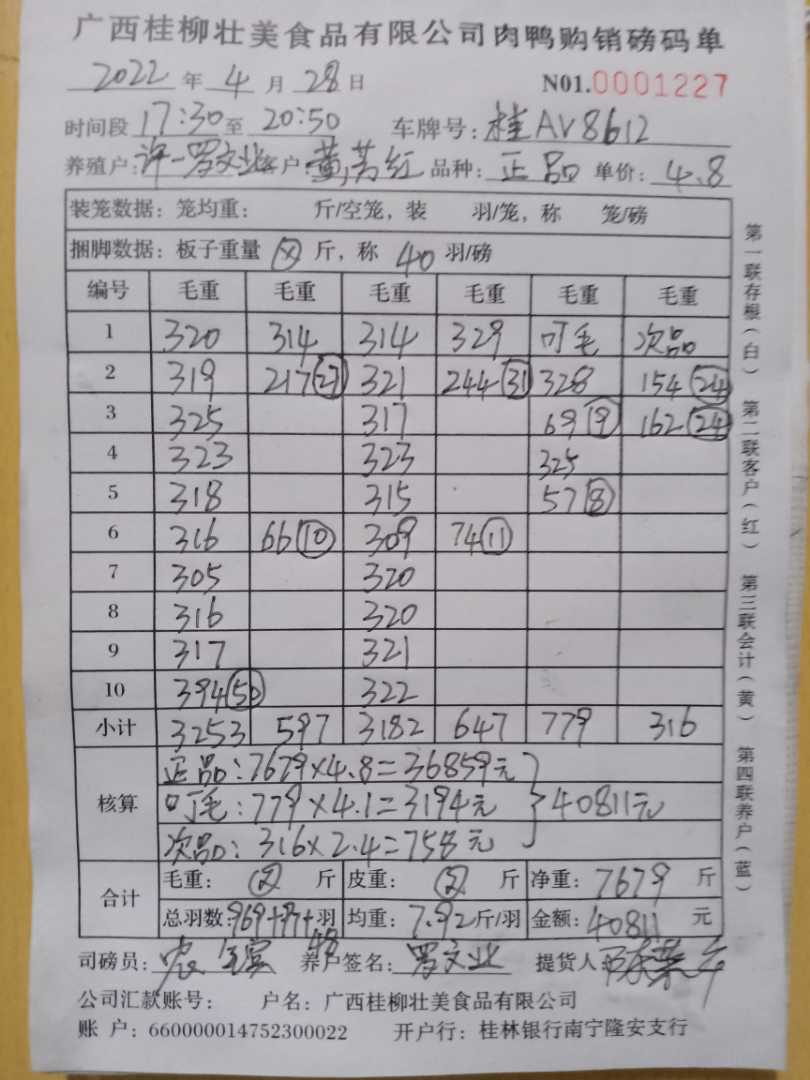 广西桂柳壮美食品有限公司肉鸭购销磅码单
2022 年 4 月 28 日 N01.0001227
时间段 17:30 至 20:50 车牌号: 桂AV8612
养殖户: 许一罗文业 客户: 黄 红 品种: 正品 单价: 4.8
装笼数据: 笼均重: 斤/空笼, 装 羽/笼, 称 笼/磅
捆脚数据: 板子重量 斤, 称 40 羽/磅
编号 毛重 毛重 毛重 毛重 毛重 毛重
1 320 314 314 329 叮毛 次品
2 319 217(27) 321 244(31) 328 154(24)
3 325 317 69(9) 162(24)
4 323 323 325
5 318 315 57(8)
6 316 66(10) 309 74(11)
7 305 320
8 316 320
9 317 321
10 394(50) 322
小计 3253 597 3182 647 779 316
核算
正品: 7679×4.8=36859元
叮毛: 779×4.1=3194元 } 40811元
次品: 316×2.4=758元
合计
毛重: 斤 皮重: 斤 净重: 7679 斤
总羽数: 969+97+ 羽 均重: 7.92 斤/羽 金额: 40811 元
48
司磅员: 养户签名: 罗文业 提货人:
公司汇款账号: 户名: 广西桂柳壮美食品有限公司
账 户: 660000014752300022 开户行: 桂林银行南宁隆安支行
第一联存根(白) 第二联客户(红) 第三联会计(黄) 第四联养户(蓝)